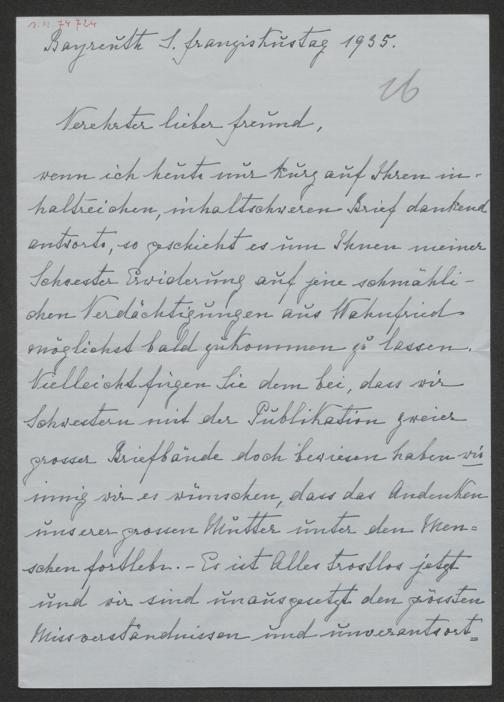 I.N. 74 724
Bayreuth S. franziskustag 1935.
26
Verehrter lieber freund,
wenn ich heute nur kurz auf Ihren in-
haltreichen, inhaltschweren Brief dankend
antworte, so geschieht es um Ihnen meiner
Schwester Erwiderung auf jene schmähli-
chen Verdächtigungen aus Wahnfried
möglichst bald zukommen zu lassen.
Vielleicht fügen Sie dem bei, dass wir
Schwestern mit der Publikation zweier
grosser Briefbände doch bewiesen haben wie
innig wir es wünschen, dass das Andenken
unserer grossen Mutter unter den Men-
schen fortlebe. - Es ist Alles trostlos jetzt
und wir sind unausgesetzt den grössten
Missverständnissen und unverantwort=